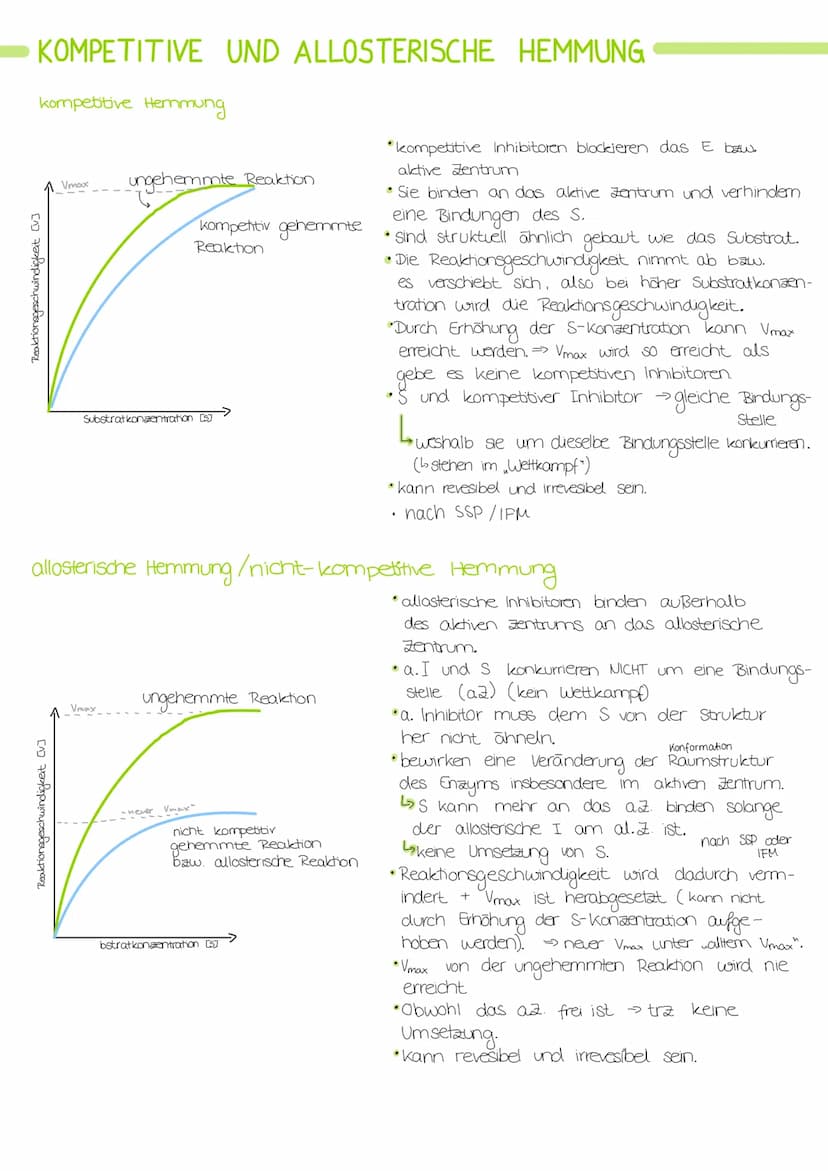 KOMPETITIVE UND ALLOSTERISCHE HEMMUNG
kompetitive Hemmung
Vmax
ungehemmte Reaktion
kompetitiv gehemmte
Reaktion
Reaktionsgeschwindigkeit [v]
Substratkonzentration [S]
• kompetitive Inhibitoren blockieren das E bzw.
aktive Zentrum
• Sie binden an das aktive Zentrum und verhindern
eine Bindungen des S.
• sind struktuell ähnlich gebaut wie das Substrat.
• Die Reaktionsgeschwindigkeit nimmt ab bzw.
es verschiebt sich, also bei höher Substratkonzen-
tration wird die Reaktionsgeschwindigkeit.
• Durch Erhöhung der S-Konzentration kann Vmax
erreicht werden. ⇒ Vmax wird so erreicht als
gebe es keine kompetitiven Inhibitoren
• S und kompetitiver Inhibitor → gleiche Bindungs-
Stelle
↳ weshalb sie um dieselbe Bindungsstelle konkurrieren.
(↳ stehen im „Wettkampf“)
• kann revesibel und irrevesibel sein.
• nach SSP / IFM
allosterische Hemmung / nicht-kompetitive Hemmung
Vmax
ungehemmte Reaktion
"neuer Vmax"
nicht kompetitiv
gehemmte Reaktion
bzw. allosterische Reaktion
Reaktionsgeschwindigkeit [v]
bstratkonzentration [S]
• allosterische Inhibitoren binden außerhalb
des aktiven Zentrums an das allosterische
Zentrum.
• a. I und S konkurrieren NICHT um eine Bindungs-
stelle (aZ) (kein Wettkampf)
• a. Inhibitor muss dem S von der Struktur
her nicht ähneln.
Konformation
• bewirken eine Veränderung der Raumstruktur
des Enzyms insbesondere im aktiven Zentrum.
↳ S kann mehr an das a.Z. binden solange
der allosterische I am al.Z. ist.
↳ keine Umsetzung von S.
nach SSP oder
IFM
• Reaktionsgeschwindigkeit wird dadurch verm-
indert + Vmax ist herabgesetzt (kann nicht
durch Erhöhung der S-Konzentration aufge-
hoben werden). ⇒ neuer Vmax unter „altem Vmax“.
• Vmax von der ungehemmten Reaktion wird nie
erreicht
• Obwohl das a.Z. frei ist → trz keine
Umsetzung.
• kann revesibel und irrevesibel sein.